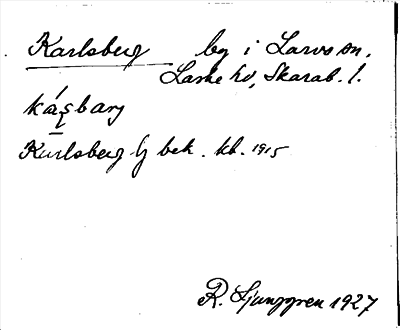 Karlsberg by i Larvs sn.
Laske hd, Skarab. l.
káʂbarj
Karlsberg by bek. kb. 1915
R. Ljunggren 1927